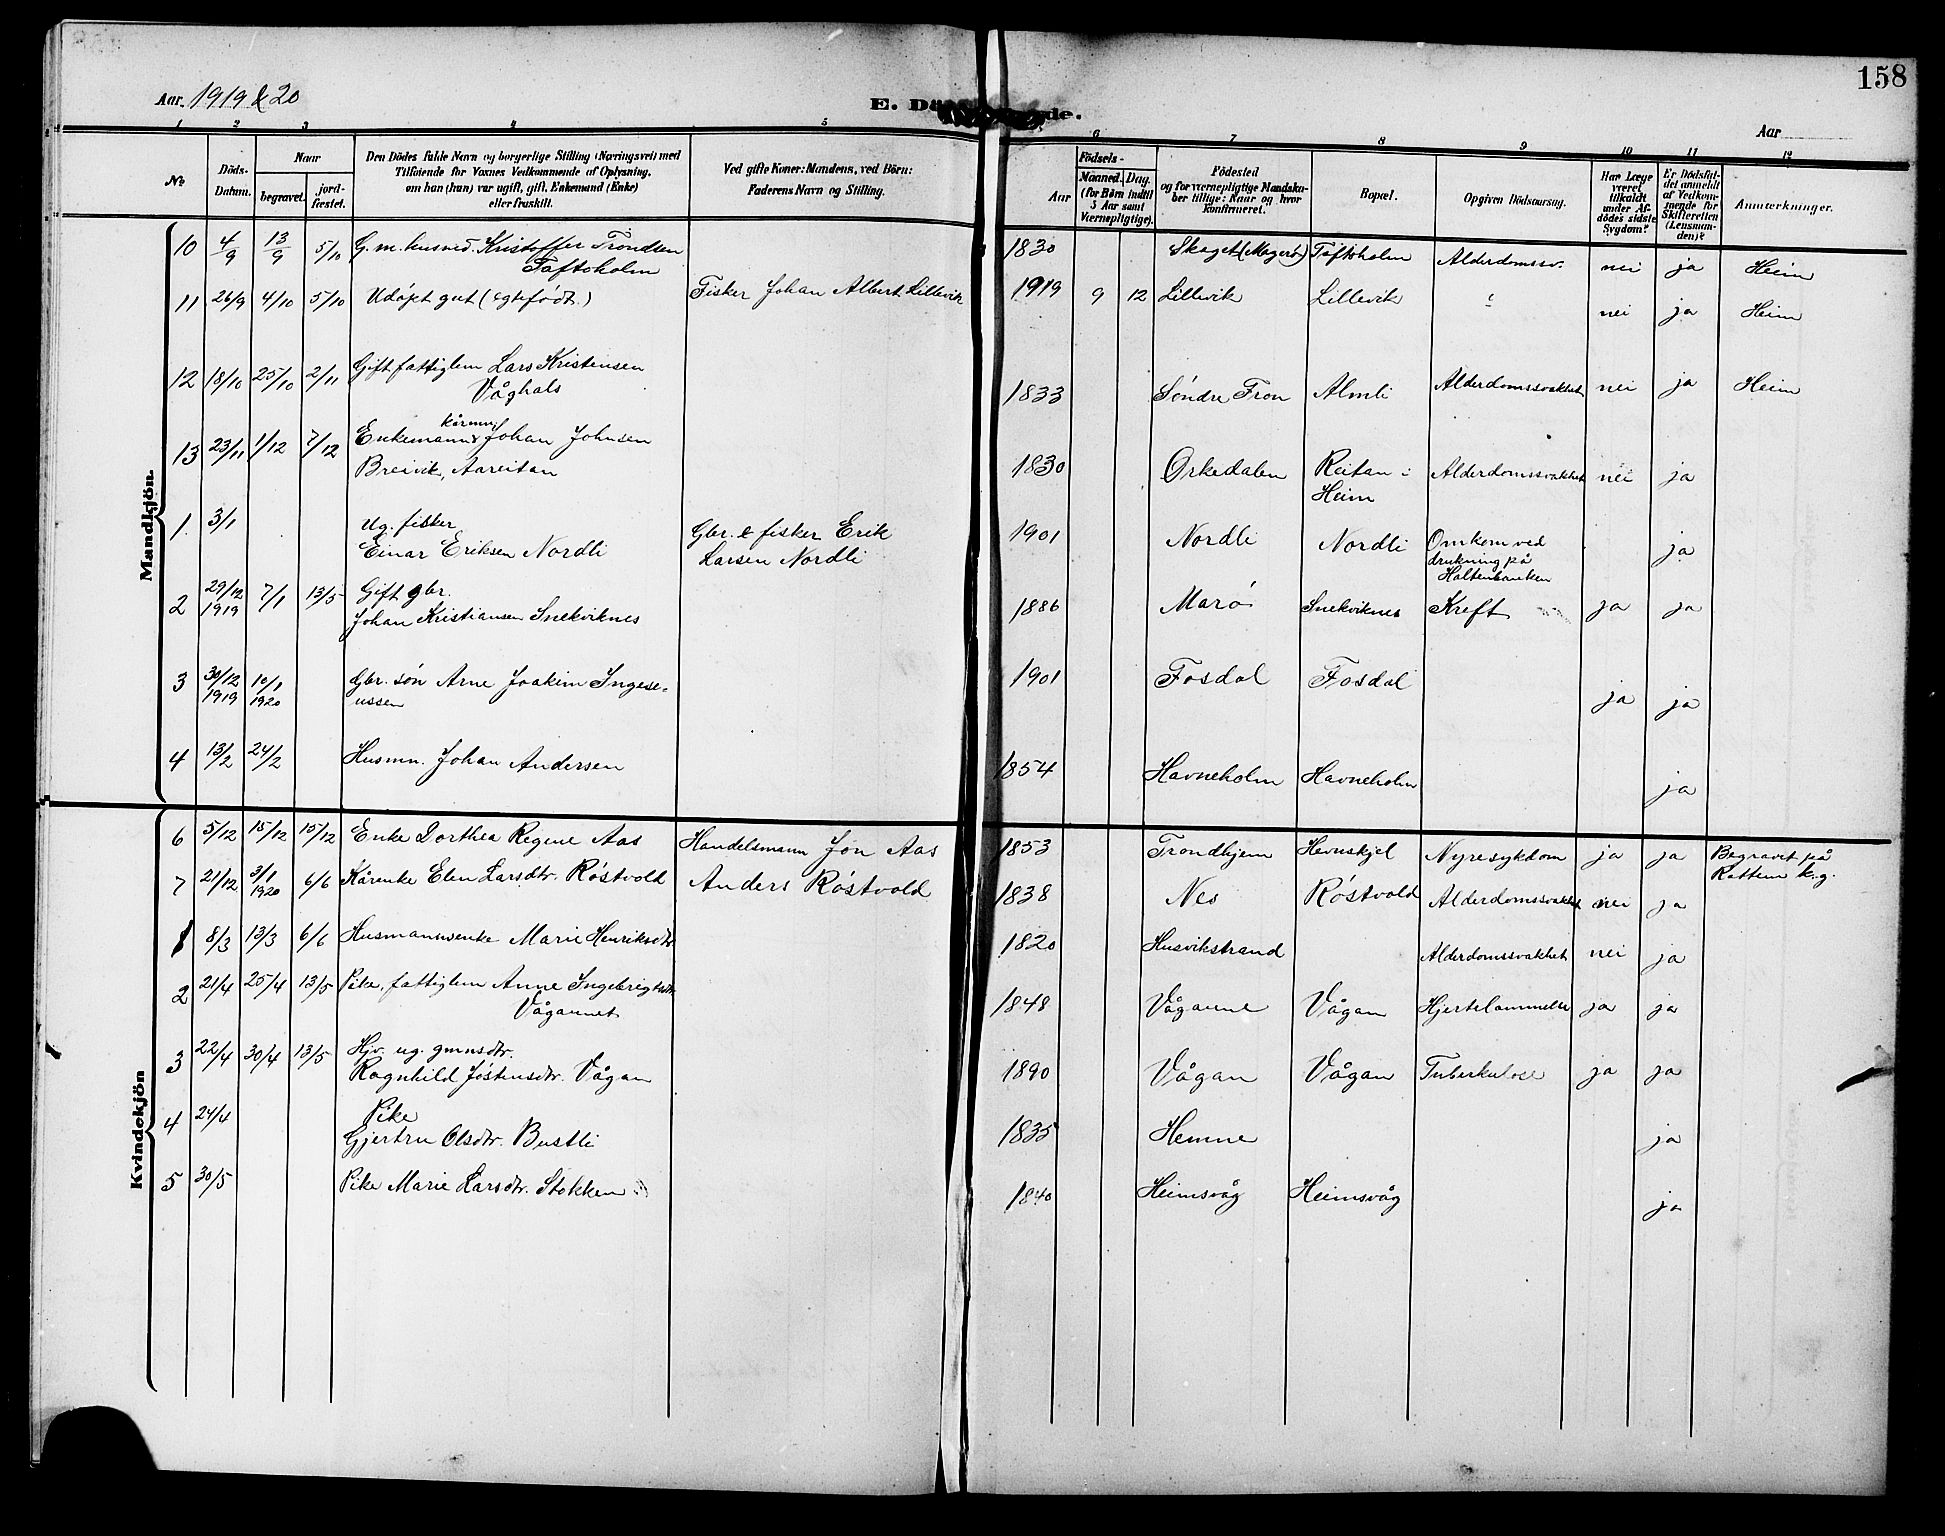 158
Aar 1919 & 20
E. Dö de.
Aar
1 2 3 4 5 6 7 8 9 10 11 12
No
Döds-Datum.
Naar
begravet.
jordfæstet.
Den Dödes fulde Navn og borgerlige Stilling (Næringsvei) med
Tilföiende for Voxnes Vedkommende af Oplysning,
om han (hun) var ugift, gift, Enkemand (Enke)
eller fraskilt.
Ved gifte Koner: Mandens, ved Börn:
Faderens Navn og Stilling.
Aar
Födsels-
Maaned. Dag.
(for Börn indtil
5 Aar samt
Værnepligtige).
Födested
og for værnepligtige Mandska-
ber tillige: Naar og hvor
konfirmeret.
Bopæl.
Opgiven Dödsaarsag.
Har Læge
været
tilkaldt
under Af-
dödes sidste
Sygdom?
Er Dödsfal-
det anmeldt
af Vedkom-
mende for
Skifteretten
(Lensman-
den)?
Anmærkninger.
Mandkjön.
10 4/9 13/9 5/10 G. m. husmd. Kristoffer Trondsen 1830 Skaget (Magerö) Taftöholm Alderdomssv. nei ja Heim
Taftøholm
11 26/9 4/10 5/10 Udöpt gut (egtefødt.) Fisker Johan Albert Lillevik 1919 9 12 Lillevik Lillevik nei ja Heim
12 18/10 25/10 2/11 Gift fattiglem Lars Kristensen 1833 Søndre Fron Almli Alderdomssvakhet nei ja Heim
Våghals
kårmn
13 23/11 1/12 7/12 Enkemann & Johan Johnsen 1830 Orkedalen Reitan i Alderdomssvakhet nei ja
Breivik, Aareitan Heim
1. 3/1 Ug. fisker Gbr. & fisker Erik 1901 Nordli Nordli Omkom ved ja
Einar Eriksen Nordli Larsen Nordli drukning på
Haltenbanken
2 29/12 1919 7/1 13/5 Gift gbr. 1886 Marø Snekviknes Kreft ja ja
Johan Kristiansen Snekviknes
3 30/12 1919 10/1 1920 Gbr. søn Arne Joakim Ingese- 1901 Fosdal Fosdal ja ja
ussen
4 13/2 24/2 Husmn. Johan Andersen 1854 Havneholm Havneholm ja
Kvindekjön
6 5/12 15/12 15/12 Enke Dorthea Regine Aas Handelsmann Jon Aas 1853 Trondhjem Hevnskjel Nyresykdom ja ja Begravet på
Rottem k.g.
7 21/12 3/1 1920 6/6 Kårenke Elen Larsdtr. Røstvold Anders Røstvold 1838 Nes Røstvold Alderdomssvakhet nei ja
1 8/3 13/3 6/6 Husmannsenke Marie Henriksdtr 1820 Husvikstrand Alderdomssvakhet nei ja
2 21/4 25/4 13/5 Pike, fattiglem Anne Ingebrigtsdtr 1848 Våganne Vågan Hjertelammelse ja ja
Vågannet
3 22/4 30/4 13/5 Hjv. ug. gmnsdtr. 1890 Vågan Vågan Tuberkulose ja ja
Ragnhild Jøstensdtr. Vågan
4 24/4 Pike 1835 Hemne ja
Gjertru Olsdtr. Bustli
5 30/5 Pike Marie Larsdtr. Stokken 1840 Heimsvåg Heimsvåg ja